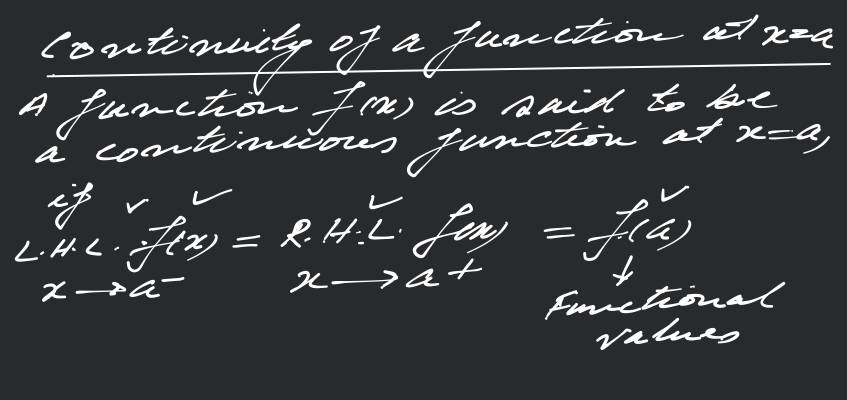 Continuity of a function at x=a
A function f(x) is said to be
a continuous function at x=a,
if
L.H.L. f(x) = R.H.L. f(x) = f(a)
x→a⁻ x→a+ ↓
Functional
values